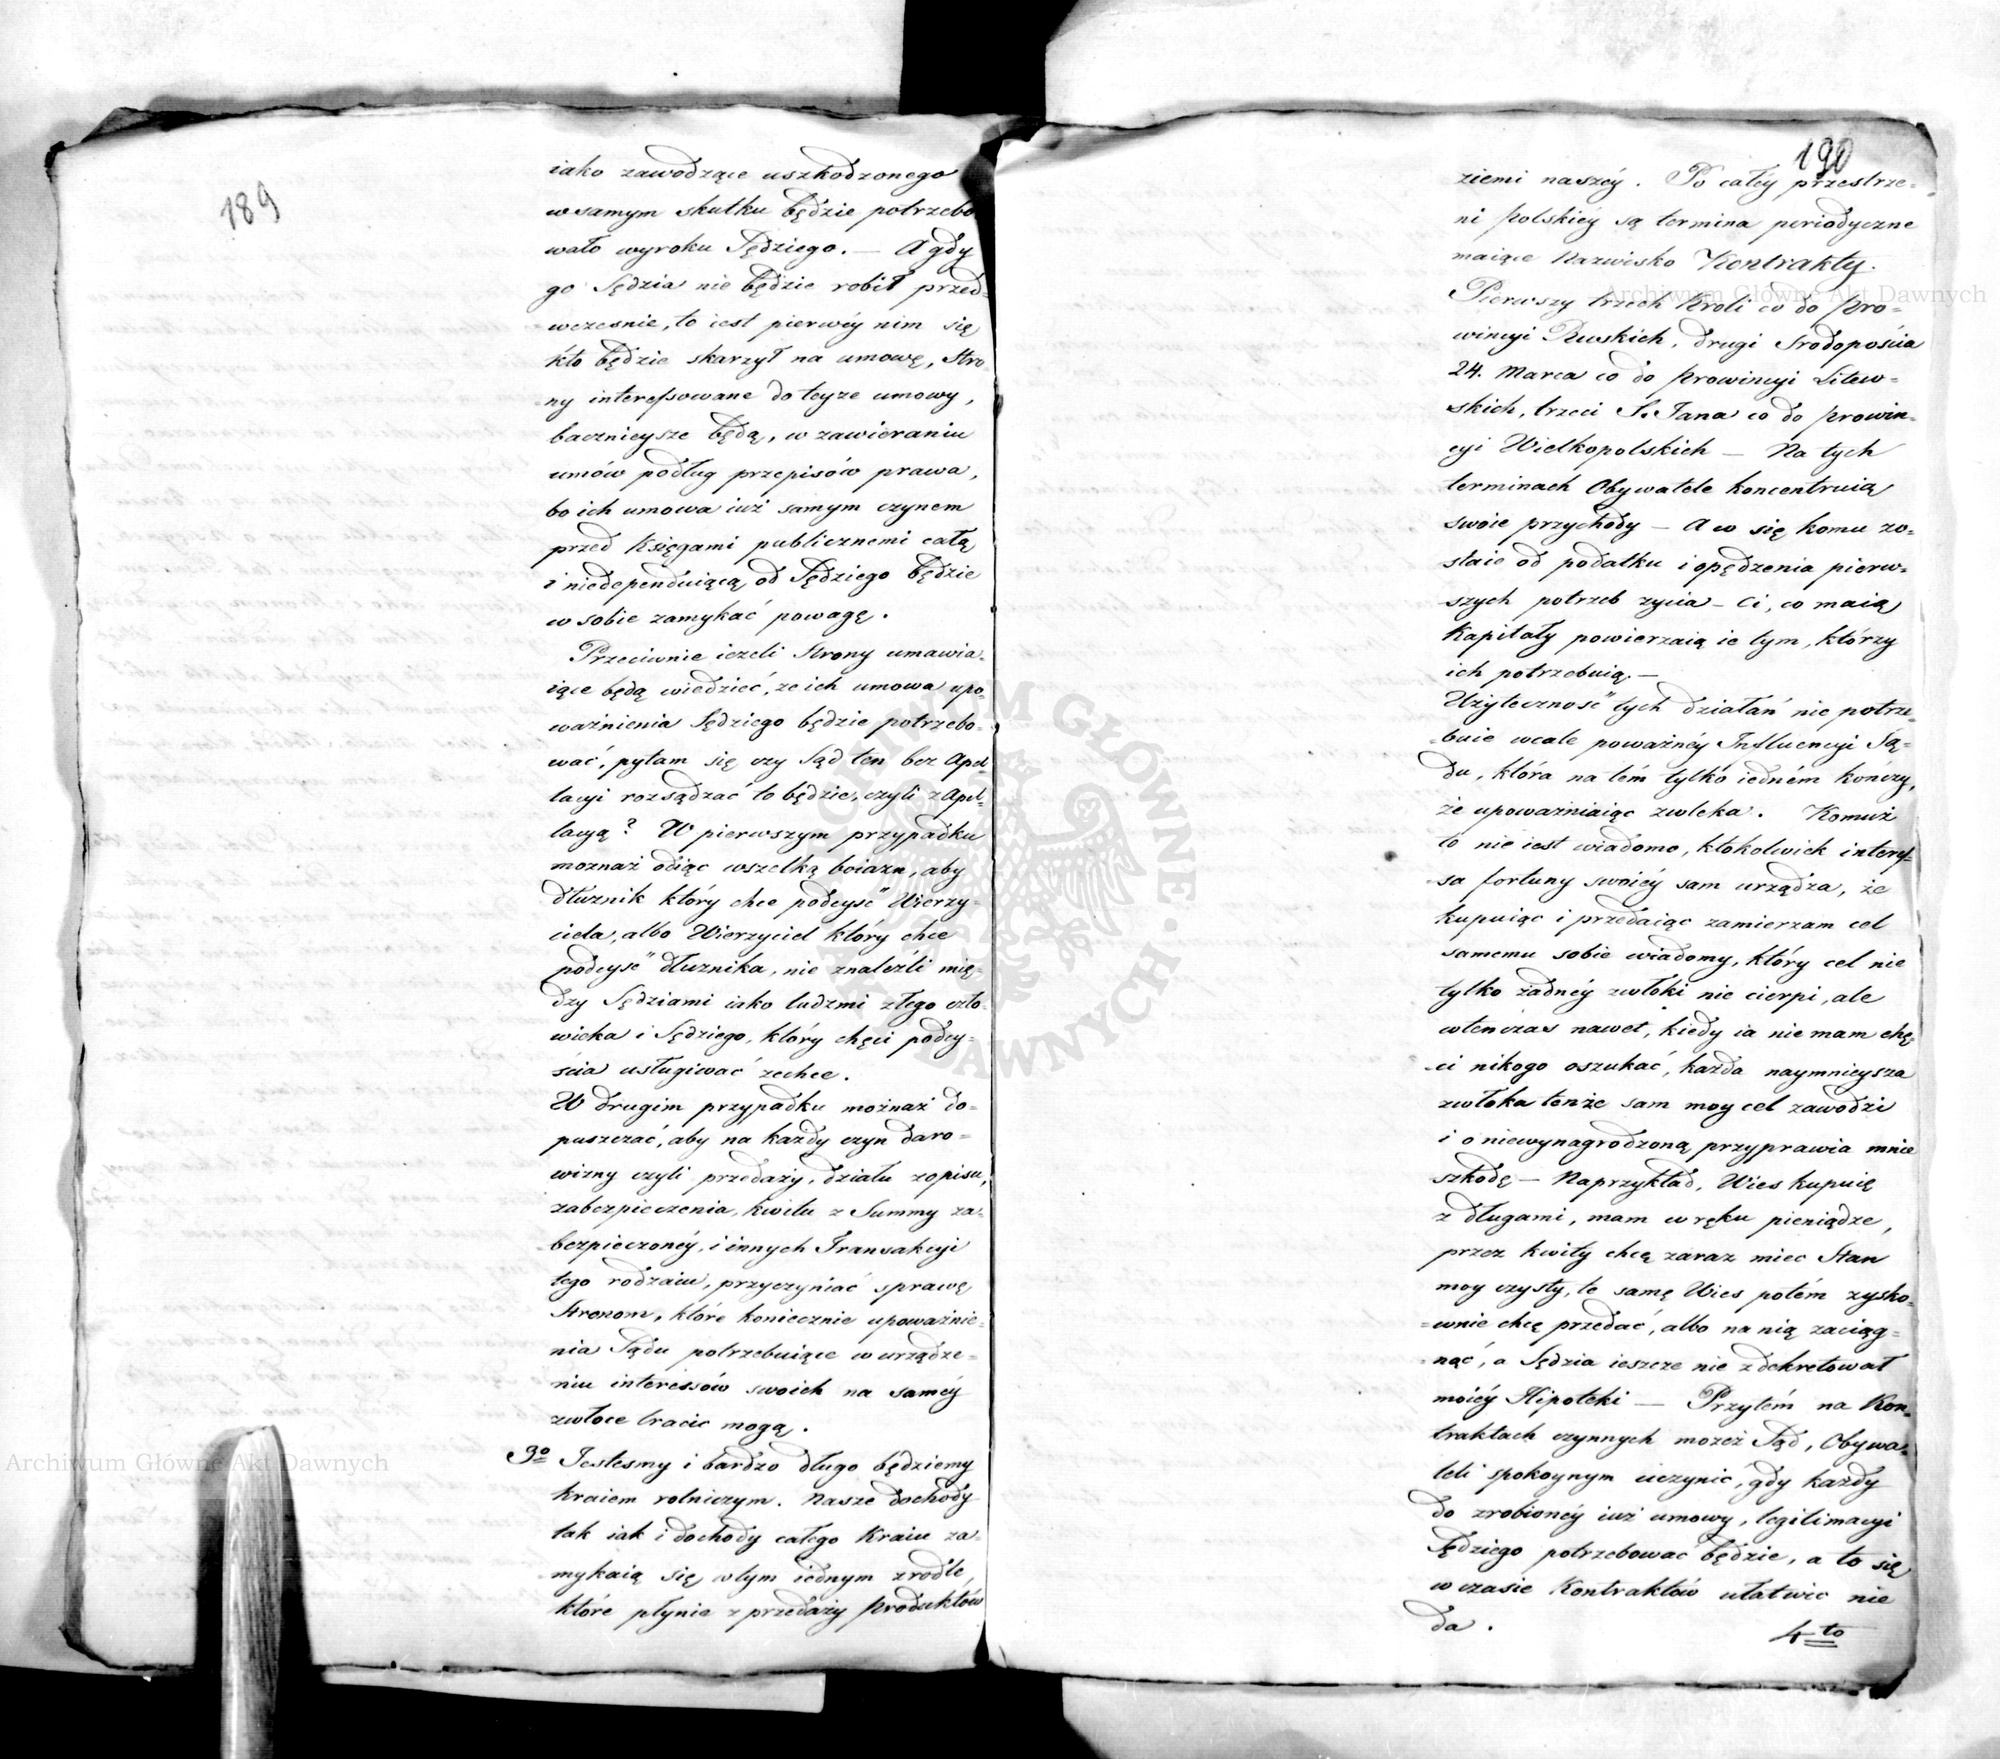 189
iako zawodzące uszkodzonego
w samym skutku będzie potrzebo
wało wyroku Sędziego. — A gdy
go Sędzia nie będzie robił przed-
wczesnie, to iest pierwéy nim się
kto będzie skarzył na umowę, Stro-
ny interessowane do teyze umowy,
bacznieysze będą, w zawieraniu
umów podług przepisów prawa,
bo ich umowa iuż samym czynem
przed Księgami publicznemi całą
i niedependuiącą od Sędziego będzie
w sobie zamykać powagę.
Przeciwnie iezeli Strony umawia-
iące będą wiedzieć, ze ich umowa upo-
ważnienia Sędziego będzie potrzebo-
wać, pytam się czy Sąd ten bez Apel-
lacyi rozsądzać to będzie, czyli z Apel-
lacyą? W pierwszym przypadku
moznaż odiąc wszelką boiazn, aby
dłuznik który chce podeyść Wierzy-
ciela, albo Wierzyciel który chce
podeyść dłuznika, nie znaleźli mię-
dzy Sędziami iako ludzmi złego czło-
wieka i Sędziego, który chęci podey-
ścia usługiwać zechce.
W drugim przypadku możnaż do-
puszczać, aby na każdy czyn daro-
wizny czyli przedaży, działu zapisu,
zabezpieczenia, kwitu z Summy za-
bezpieczonéy, i innych Transakcyi
tego rodzaiu, przyczyniać sprawę
Stronom, które koniecznie upoważnie-
nia Sądu potrzebuiące w urządze-
niu interessów swoich na saméy
zwłoce tracic mogą.
3o Iestesmy i bardzo długo będziemy
kraiem rolniczym. Nasze dochody
tak iak i dochody całego Kraiu za-
mykaią się w tym iednym zrodle,
które płynie z przedaży Produktów
190
ziemi naszéy. Po całéy przestrze-
ni Polskiéy są termina periodyczne
maiące Nazwisko Kontrakty.
Pierwszy trzech Kroli co do Pro-
wincyi Ruskich, drugi Srodopościa
24. Marca co do Prowincyi Litew-
skich, trzeci S. Jana co do prowin-
cyi Wielkopolskich — Na tych
terminach Obywatele koncentruią
swoie przychody — A co się komu zo-
staie od podatku i opędzenia pierw-
szych potrzeb zycia — Ci, co maią
Kapitały powierzaią ie tym, którzy
ich potrzebuią. —
Użyteczność tych działań nie potrze-
buie wcale poważnéy Influencyi Są-
du, która na tém tylko iedném kończy,
że upoważniaiąc zwleka. Komuż
to nie iest wiadomo, ktokolwiek interes-
sa fortuny swoiéy sam urządza, że
kupuiąc i przedaiąc zamierzam cel
samemu sobie wiadomy, który cel nie
tylko żadnéy zwłoki nie cierpi, ale
wtenczas nawet, kiedy ia nie mam chę-
ci nikogo oszukać, każda naymnieysza
zwłoka tenże sam moy cel zawodzi
i o niewynagrodzoną przyprawia mnie
szkodę — Naprzykład, Wies kupuię
z długami, mam w ręku pieniądze,
przez kwity chcę zaraz miec Stan
moy czysty, tę samę Wies potém zysko-
wnie chcę przedać, albo na nią zaciąg-
nąć, a Sędzia ieszcze nie zdekretował
moiéy Hipoteki — Przytém na Kon-
traktach czynnych możeż Sąd, Obywa-
teli spokoynym uczynić, gdy każdy
do zrobionéy iuż umowy, legitimacyi
Sędziego potrzebować będzie, a to się
w czasie Kontraktów ułatwic nie
da.
4to
Archiwum Główne Akt Dawnych
Archiwum Główne Akt Dawnych
ARCHIWUM GŁÓWNE AKT DAWNYCH